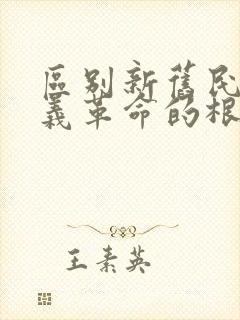 區别新舊民
義革命的根
王素英